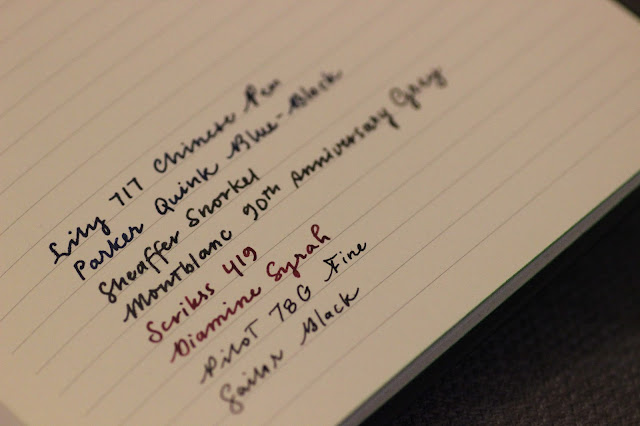 Lily 717 Chinese Pen
Parker Quink Blue-Black
Sheaffer Snorkel
Montblanc 90th Anniversary Gray
Scrikss 419
Diamine Syrah
Pilot 78G Fine
Sailor Black